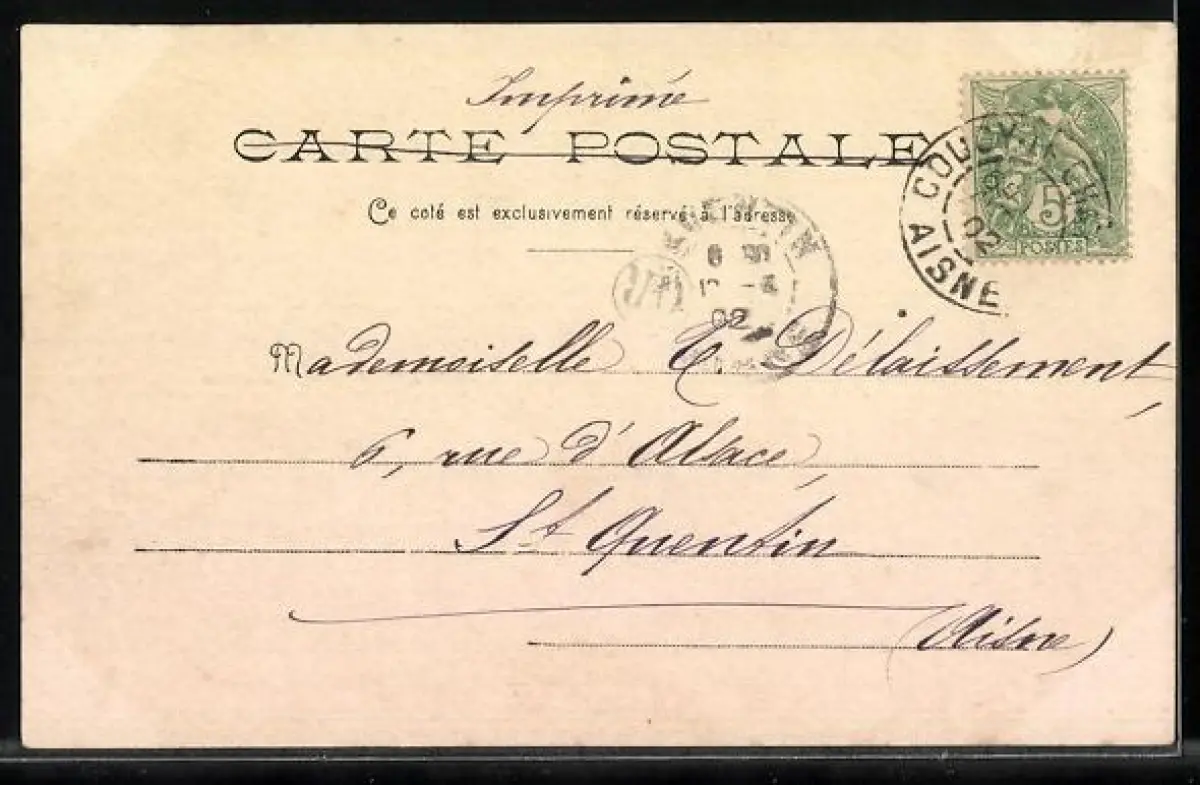 Imprimé
CARTE POSTALE
Ce coté est exclusivement réservé à l'adresse
COUCY
AISNE
02
5
POSTES
QUENTIN
02
Mademoiselle E. Délaissement,
6, rue d'Alsace,
St Quentin
(Aisne)